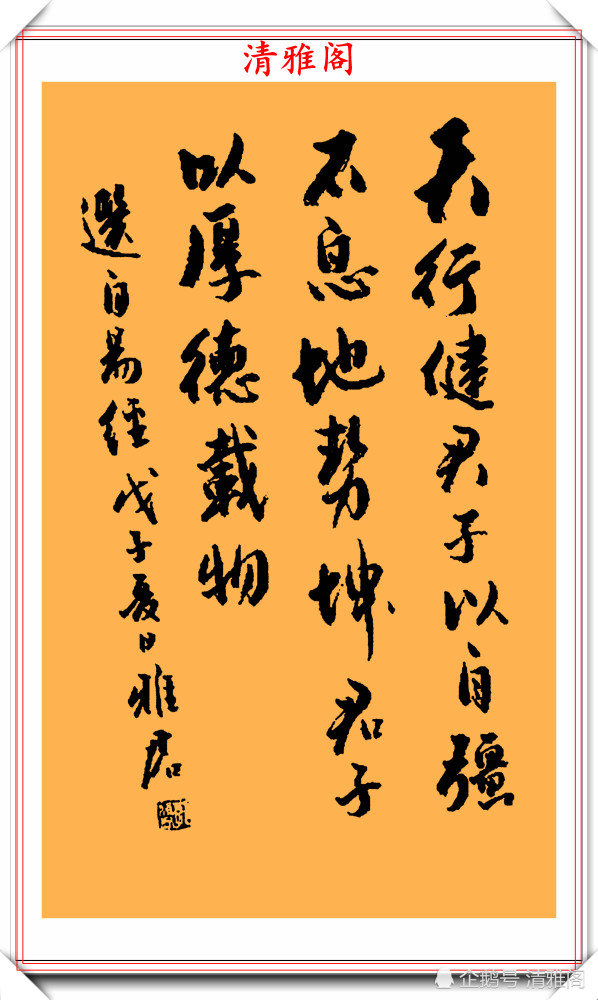 清雅阁
天行健君子以自彊
不息地势坤君子
以厚德載物
選自易经戊子夏日雅君
企鹅号 清雅阁